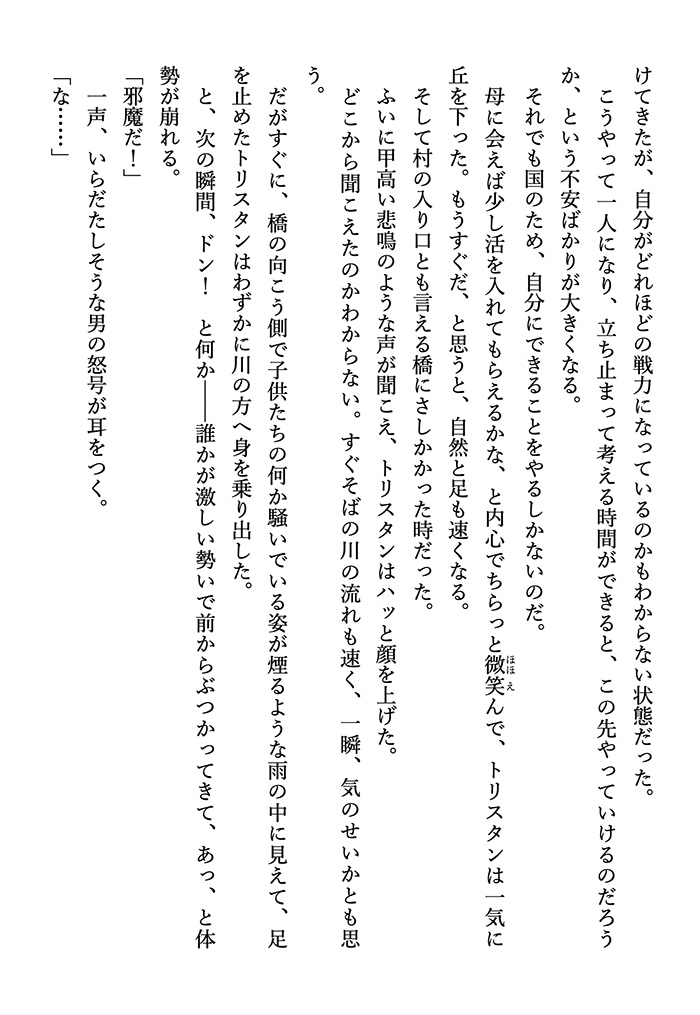 けてきたが、自分がどれほどの戦力になっているのかもわからない状態だった。
　こうやって一人になり、立ち止まって考える時間ができると、この先やっていけるのだろう
か、という不安ばかりが大きくなる。
　それでも国のため、自分にできることをやるしかないのだ。
　母に会えば少し活を入れてもらえるかな、と内心でちらっと微笑んで、トリスタンは一気に
ほほえ
丘を下った。もうすぐだ、と思うと、自然と足も速くなる。
　そして村の入り口とも言える橋にさしかかった時だった。
　ふいに甲高い悲鳴のような声が聞こえ、トリスタンはハッと顔を上げた。
　どこから聞こえたのかわからない。すぐそばの川の流れも速く、一瞬、気のせいかとも思
う。
　だがすぐに、橋の向こう側で子供たちの何か騒いでいる姿が煙るような雨の中に見えて、足
を止めたトリスタンはわずかに川の方へ身を乗り出した。
　と、次の瞬間、ドン！　と何か――誰かが激しい勢いで前からぶつかってきて、あっ、と体
勢が崩れる。
「邪魔だ！」
　一声、いらだたしそうな男の怒号が耳をつく。
「な……」